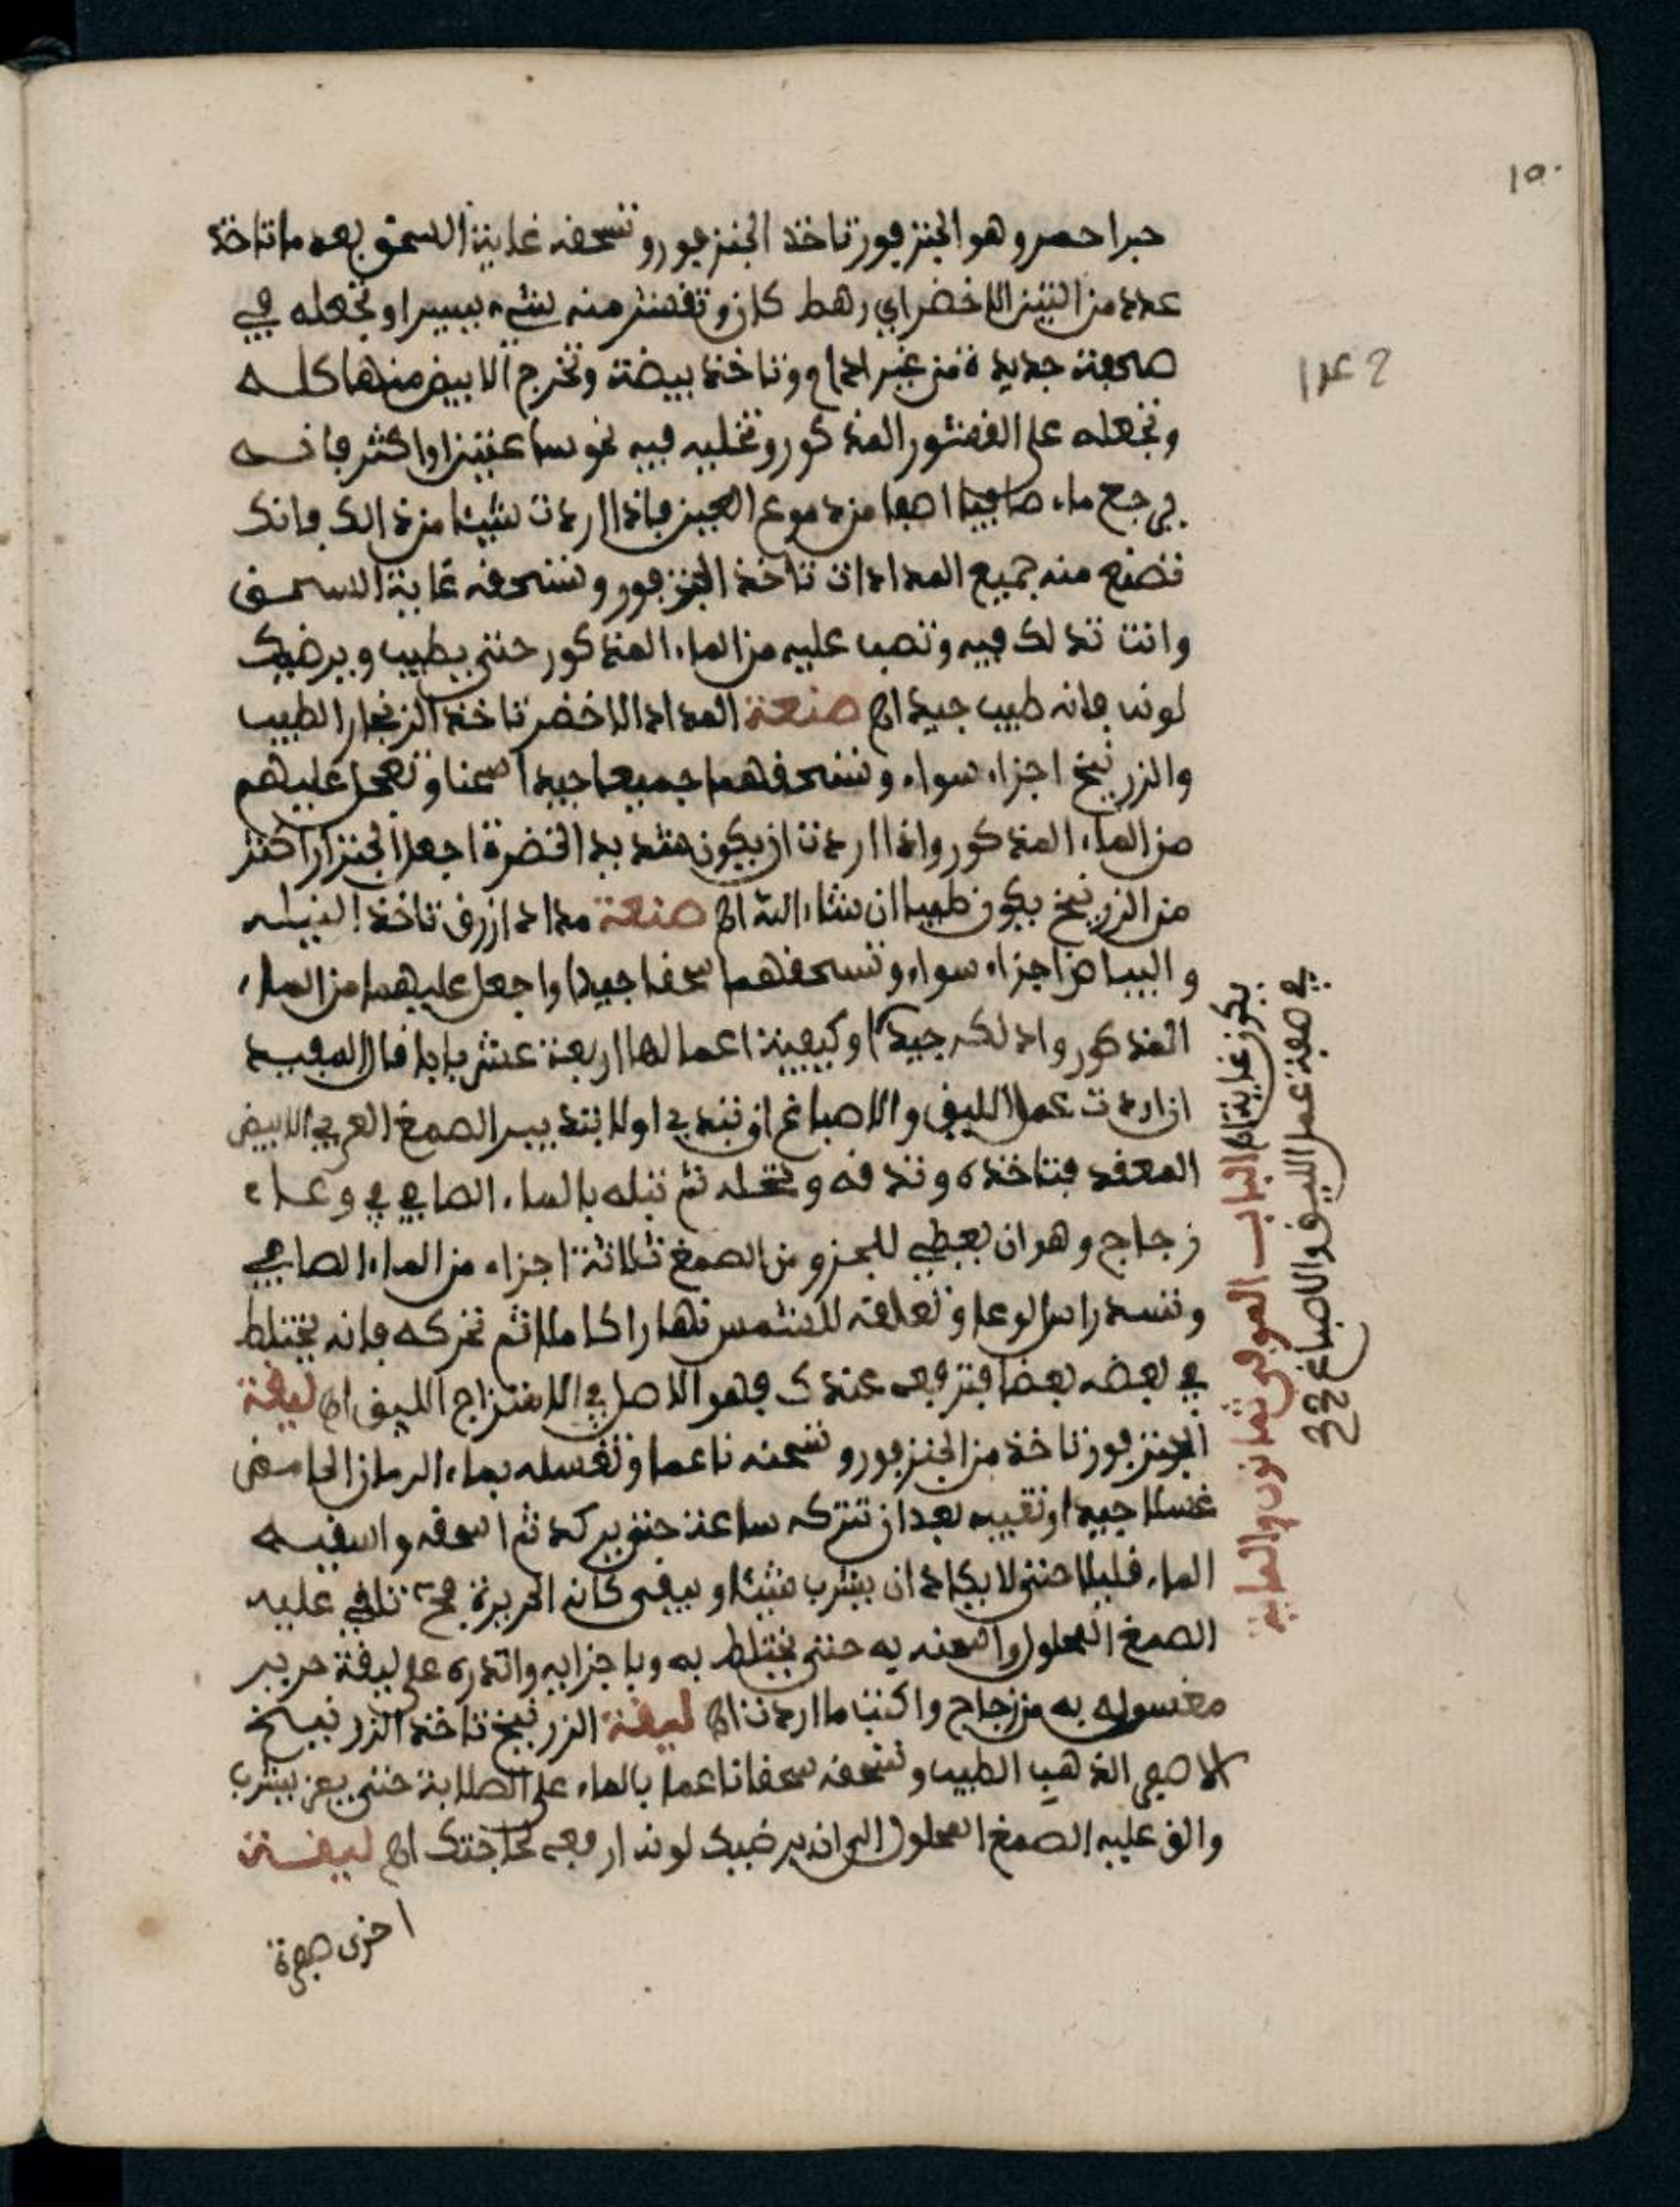 ١٥٠
حبرا حمر وهو الجنزفور تاخذ الجنزفور وتسحقه غاية السحق بعد ما تاخذ
عدد من التين الاخضر اي رهط كان وتقشر منه شيء يسيرا وتجعله في
صحفة جديدة من غير ادام وتاخذ بيضة وتخرج الابيض منها كله
وتجعله على القشور المذكور وتخليه فيه نحو ساعتين او اكثر فانه
يرجع ماء صافيا اصفا من دموع العين فاذا اردت شيئا من ذالك فانك
تصنع منه جميع المداد ان تاخذ الجنزفور وتسحقه غاية السحق
وانت تدلك فيه وتصب عليه من الماء المذكور حتى يطيب ويرضيك
لونه فانه طيب جيد اه صنعة المداد الاخضر تاخذ الزنجار الطيب
والزرنيخ اجزاء سواء وتسحقهما جميعا جيدا صحنا وتعجل عليهم
من الماء المذكور واذا اردت ان يكون شديد الخضرة اجعل الجنزار اكثر
من الزرنيخ يكون طيبا ان شاء الله اه صنعة مداد ازرق تاخذ النيله
والبياض اجزاء سواء وتسحقهما سحقا جيدا واجعل عليهما من الماء
المذكور وادلكه جيدا وكيفية اعمالها اربعة عشر بابا قال المفيد
ان اردت عمل الليق والاصباغ ان تبدي اولا بتدبير الصمغ العربي الابيض
المعقد فتاخذه وتدقه وتنخله ثم تبله بالماء الصافي في وعاء
زجاج وهو ان يعطي للجزو من الصمغ ثلاثة اجزاء من الماء الصافي
وتسد راس الوعا وتعلقه للشمس نهارا كاملا ثم تحركه فانه يختلط
في بعضه بعضا فترفعه عندك فهو الاصل في الامتزاج الليق اه ليقة
الجنزفور تاخذ من الجنزفور وتسحقه ناعما وتغسله بماء الرمان الحامض
غسلا جيدا وتقيبه بعد ان تتركه ساعة حتى يركد ثم اسحقه واسقيه
الماء قليلا حتى لا يكاد ان يشرب شيئا ويبقى كانه الحريرة مح تلقي عليه
الصمغ المحلول واشحنه به حتى يختلط به وباجزايه واتدره على ليقة حرير
مغسوله به من زجاج واكتب ما اردت اه ليقة الزرنيخ تاخذ الزرنيخ
الاصفر الذهبي الطيب وتسحقه سحقا ناعما بالماء على الصلابة حتى يعز يشرب
والق عليه الصمغ المحلول الى ان يرضيك لونه ارفعه لحاجتك اه ليقة
اخرى صفرة
يكون غاية اه الباب الموفي ثمانون والماية
في صفة عمل الليق والاصباغ